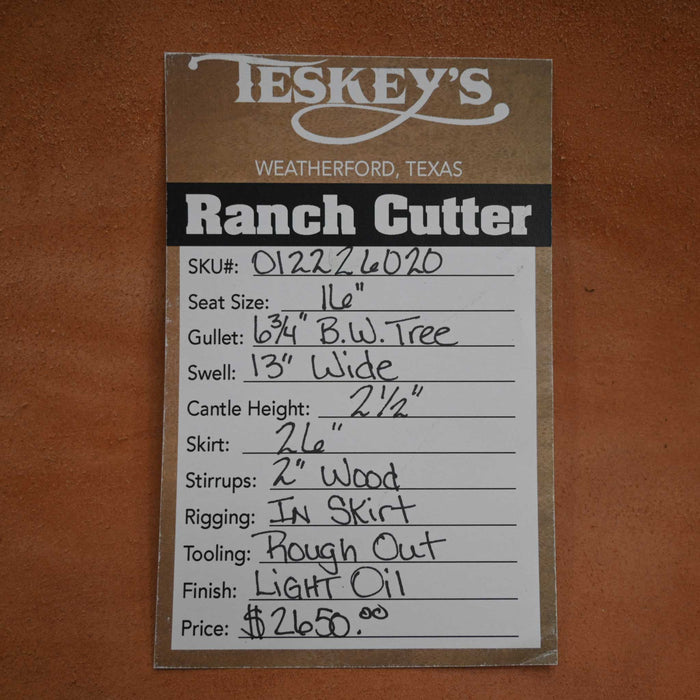 TESKEY'S
WEATHERFORD, TEXAS
Ranch Cutter
SKU#: 012226020
Seat Size: 16"
Gullet: 6¾" B.W. Tree
Swell: 13" Wide
Cantle Height: 2½"
Skirt: 26"
Stirrups: 2" Wood
Rigging: In Skirt
Tooling: Rough Out
Finish: LIGHT Oil
Price: $2650.00